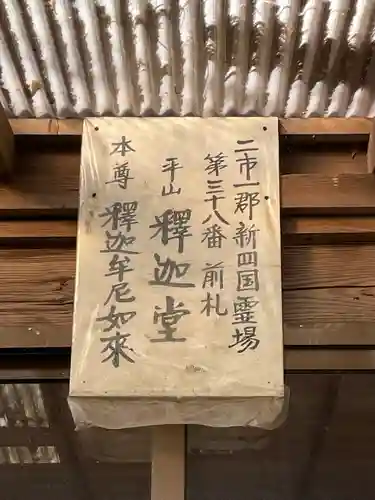 二市一郡新四国霊場
第三十八番 前札
平山
釋迦堂
本尊
釋迦牟尼如来